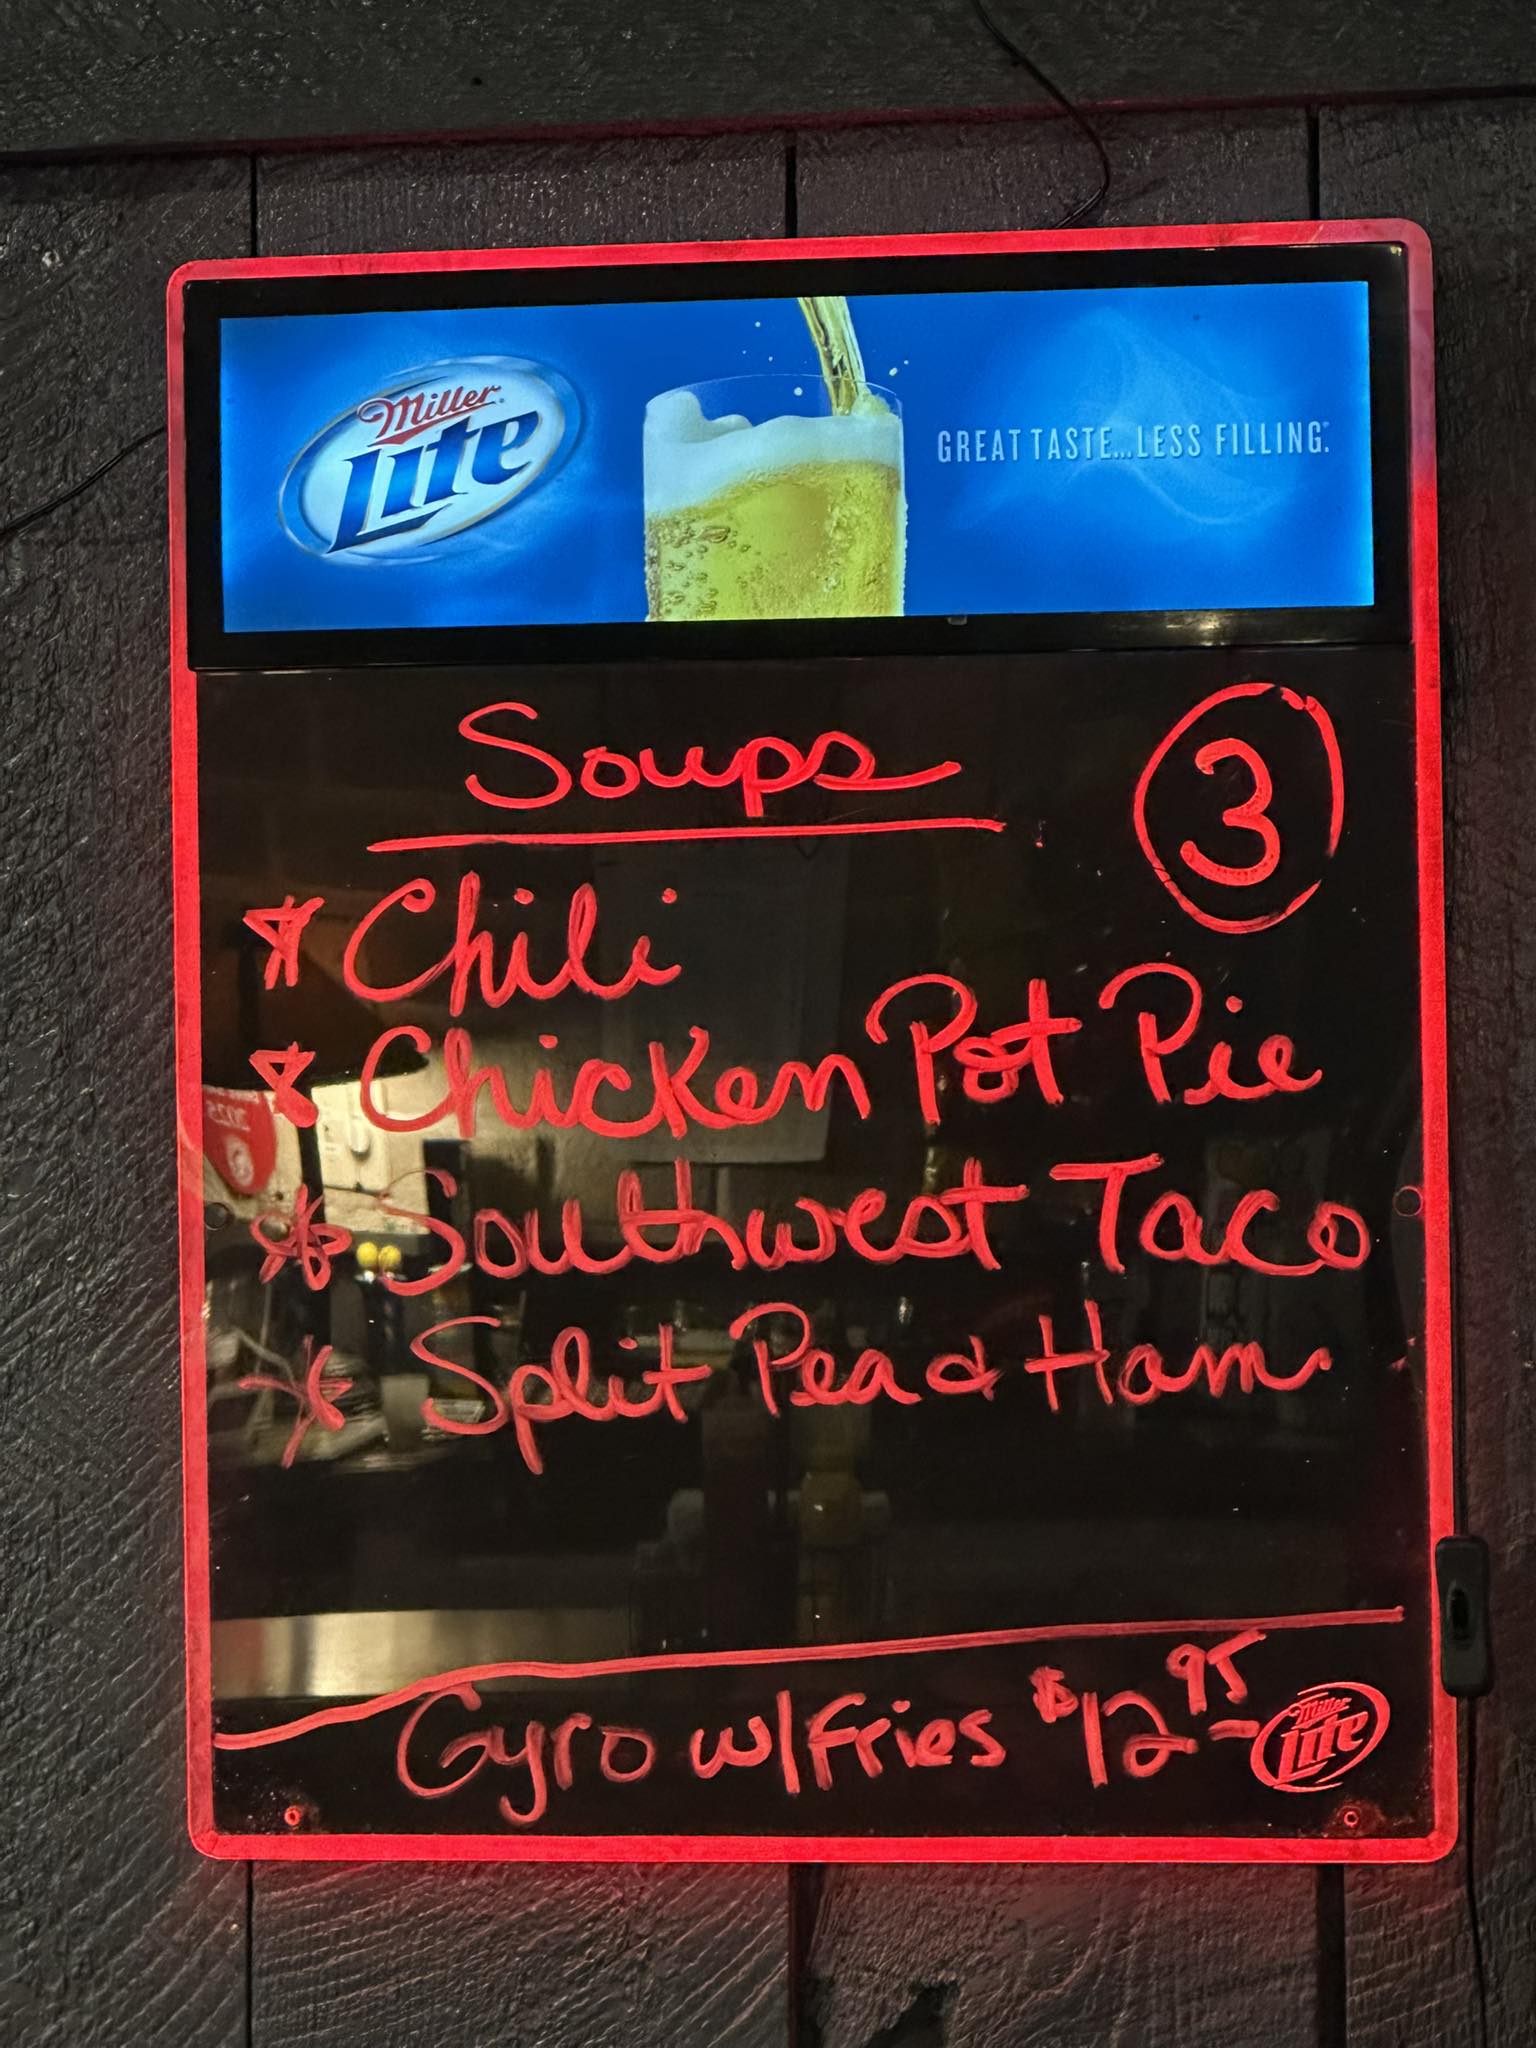 Miller
Lite
GREAT TASTE...LESS FILLING.
Soups
3
* Chili
* Chicken Pot Pie
* Southwest Taco
* Split Pea & Ham
Gyro w/Fries $12.95
Miller
Lite